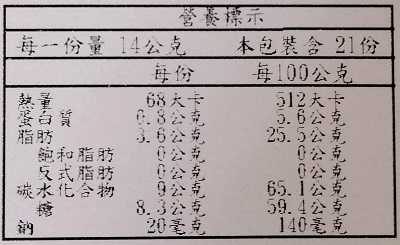 營養標示
每一份量 14公克 本包裝含 21份
每份 每100公克
熱量 68大卡 512大卡
蛋白質 0.8公克 5.6公克
脂肪 3.6公克 25.5公克
飽和脂肪 0公克 0公克
反式脂肪 0公克 0公克
碳水化合物 9公克 65.1公克
糖 8.3公克 59.4公克
鈉 20毫克 140毫克